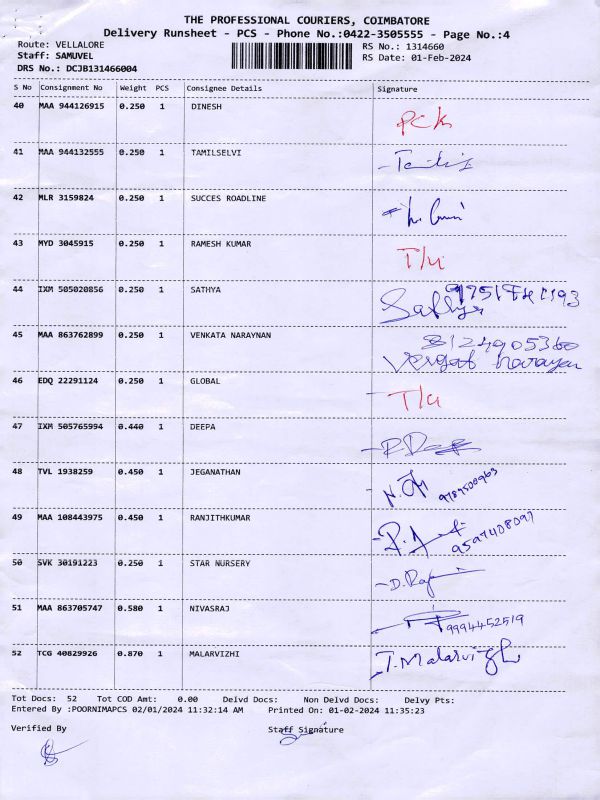 THE PROFESSIONAL COURIERS, COIMBATORE
Delivery Runsheet - PCS - Phone No.:0422-3505555 - Page No.:4
Route: VELLALORE RS No.: 1314660
Staff: SAMUVEL RS Date: 01-Feb-2024
DRS No.: DCJB131466004
S No Consignment No Weight PCS Consignee Details Signature
40 MAA 944126915 0.250 1 DINESH
41 MAA 944132555 0.250 1 TAMILSELVI
42 MLR 3159824 0.250 1 SUCCES ROADLINE
43 MYD 3045915 0.250 1 RAMESH KUMAR
44 IXM 505020856 0.250 1 SATHYA Sathya
45 MAA 863762899 0.250 1 VENKATA NARAYNAN
46 EDQ 22291124 0.250 1 GLOBAL
47 IXM 505765994 0.440 1 DEEPA
48 TVL 1938259 0.450 1 JEGANATHAN
49 MAA 108443975 0.450 1 RANJITHKUMAR
50 SVK 30191223 0.250 1 STAR NURSERY
51 MAA 863705747 0.580 1 NIVASRAJ 9994452519
52 TCG 40829926 0.870 1 MALARVIZHI
Tot Docs: 52 Tot COD Amt: 0.00 Delvd Docs: Non Delvd Docs: Delvy Pts:
Entered By :POORNIMAPCS 02/01/2024 11:32:14 AM Printed On: 01-02-2024 11:35:23
Verified By Staff Signature